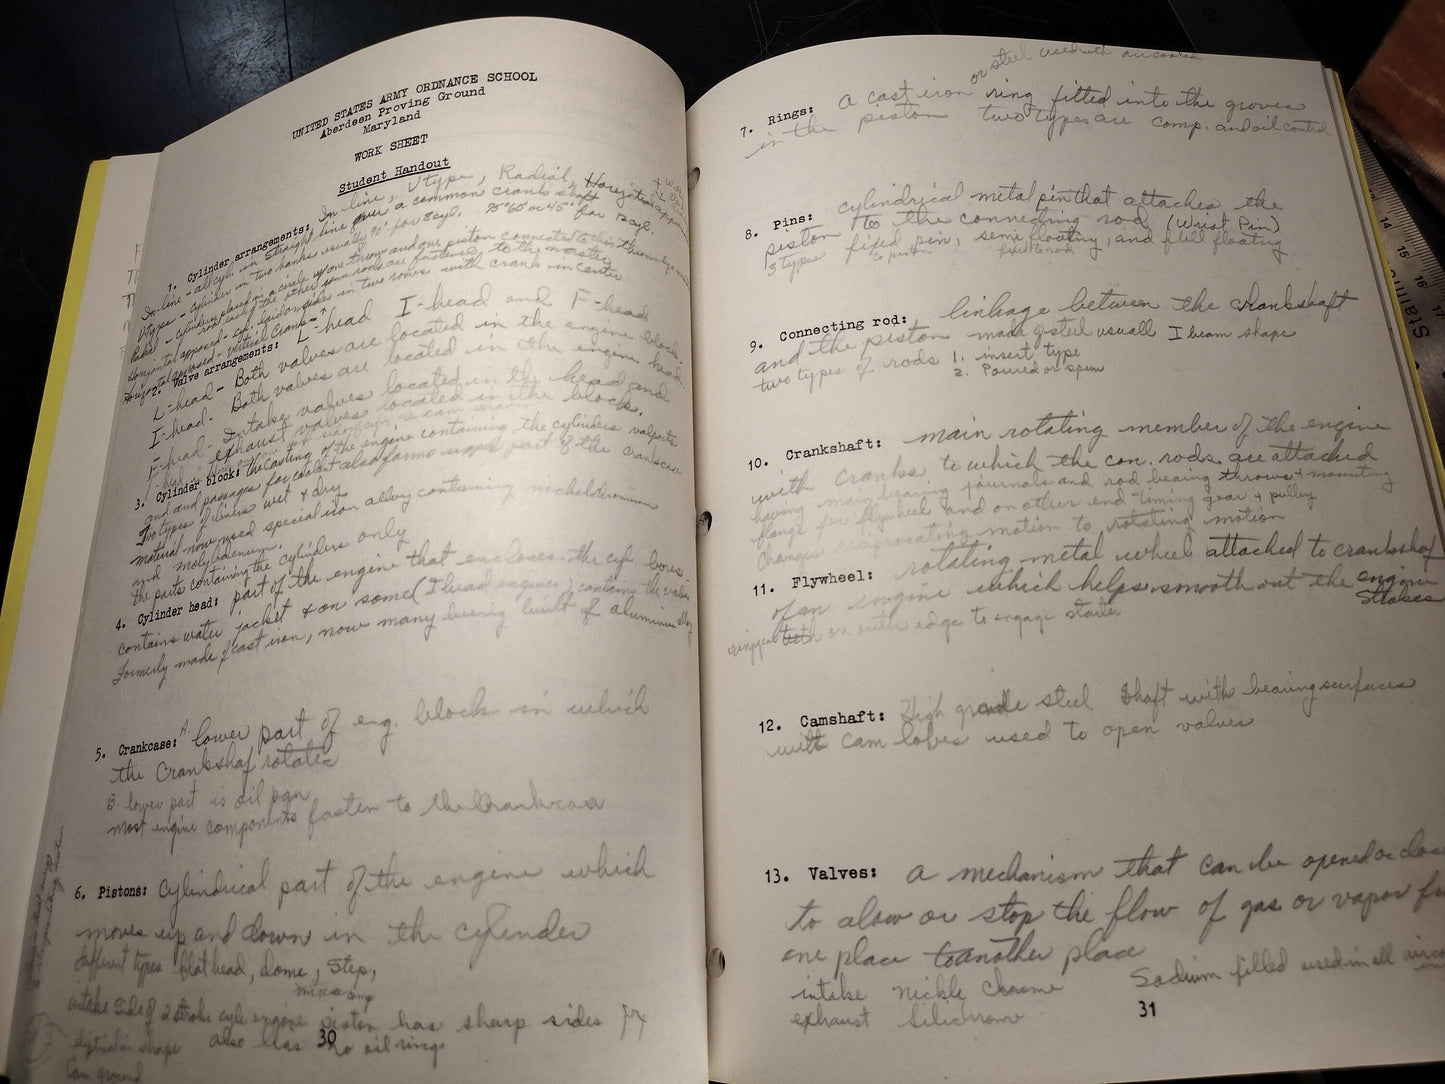 UNITED STATES ARMY ORDNANCE SCHOOL
Aberdeen Proving Ground
Maryland
WORK SHEET
Student Handout
1. Cylinder arrangements: In line, V type, Radial, Horizontal opposed
In-line - all cyl. in straight line over a common crank shaft
V type - cylinder in two banks usually 90° for 8 cyl. 75° 60° or 45° for 12 cyl.
Radial - cylinders placed in a circle w/ one throw and one piston connected to
rod the other rods are fastened to the master
Horizontal opposed - cyl. laid on sides in two rows with crank in center
Horizontal opposed - vertical crank - ↑
2. Valve arrangements: L-head I-head and F-head
L-head - Both valves are located in the engine block.
I-head - Both valves are located in the engine head.
F-head - Intake valves located in the head and
exhaust valves located in the block.
3. Cylinder block: the casting of the engine containing the cylinders valve ports
and passages for coolant also forms upper part of the crankcase
Two types of liners wet & dry
material now used special iron alloy containing nickel chromium
and molybdenum.
the parts containing the cylinders only
4. Cylinder head: part of the engine that encloses the cyl. bores -
contains water jacket & on some (I head engines) contains the valves
Formerly made of cast iron, now many being built of aluminum alloy
5. Crankcase: A lower part of eng. block in which
the Crankshaf rotates
B. lower part is oil pan
most engine components fasten to the Crankcase
6. Pistons: Cylindrical part of the engine which
moves up and down in the cylinder
different types flat head, dome, step,
intake side of 2 stroke cycle engine piston has sharp sides
shape also has no oil rings
Cam ground
30
or steel used with air cooled
7. Rings: A cast iron ring fitted into the groves
in the piston two types are comp. and oil control
8. Pins: cylindrical metal pin that attaches the
piston to the connecting rod (Wrist Pin)
3 types fixed pin, semi floating, and full floating
to piston fixed to rod
9. Connecting rod: linkage between the crankshaft
and the piston made of steel usuall I beam shape
two types of rods 1. insert type
2. Poured or spun
10. Crankshaft: main rotating member of the engine
with cranks to which the con. rods are attached
having main bearing journals and rod bearing throws & mounting
flange for flywheel and on other end timing gear & pulley
changes reciprocating motion to rotating motion
11. Flywheel: rotating metal wheel attached to crankshaf
of an engine which helps smooth out the engine
strokes
ring gear teeth on outer edge to engage starter
12. Camshaft: High grade steel shaft with bearing surfaces
with cam lobes used to open valves
13. Valves: A mechanism that can be opened or
to alow or stop the flow of gas or vapor
one place to another place
intake nickle chrome Sodium filled used in all
exhaust Silichrome
31
14
15
16
17